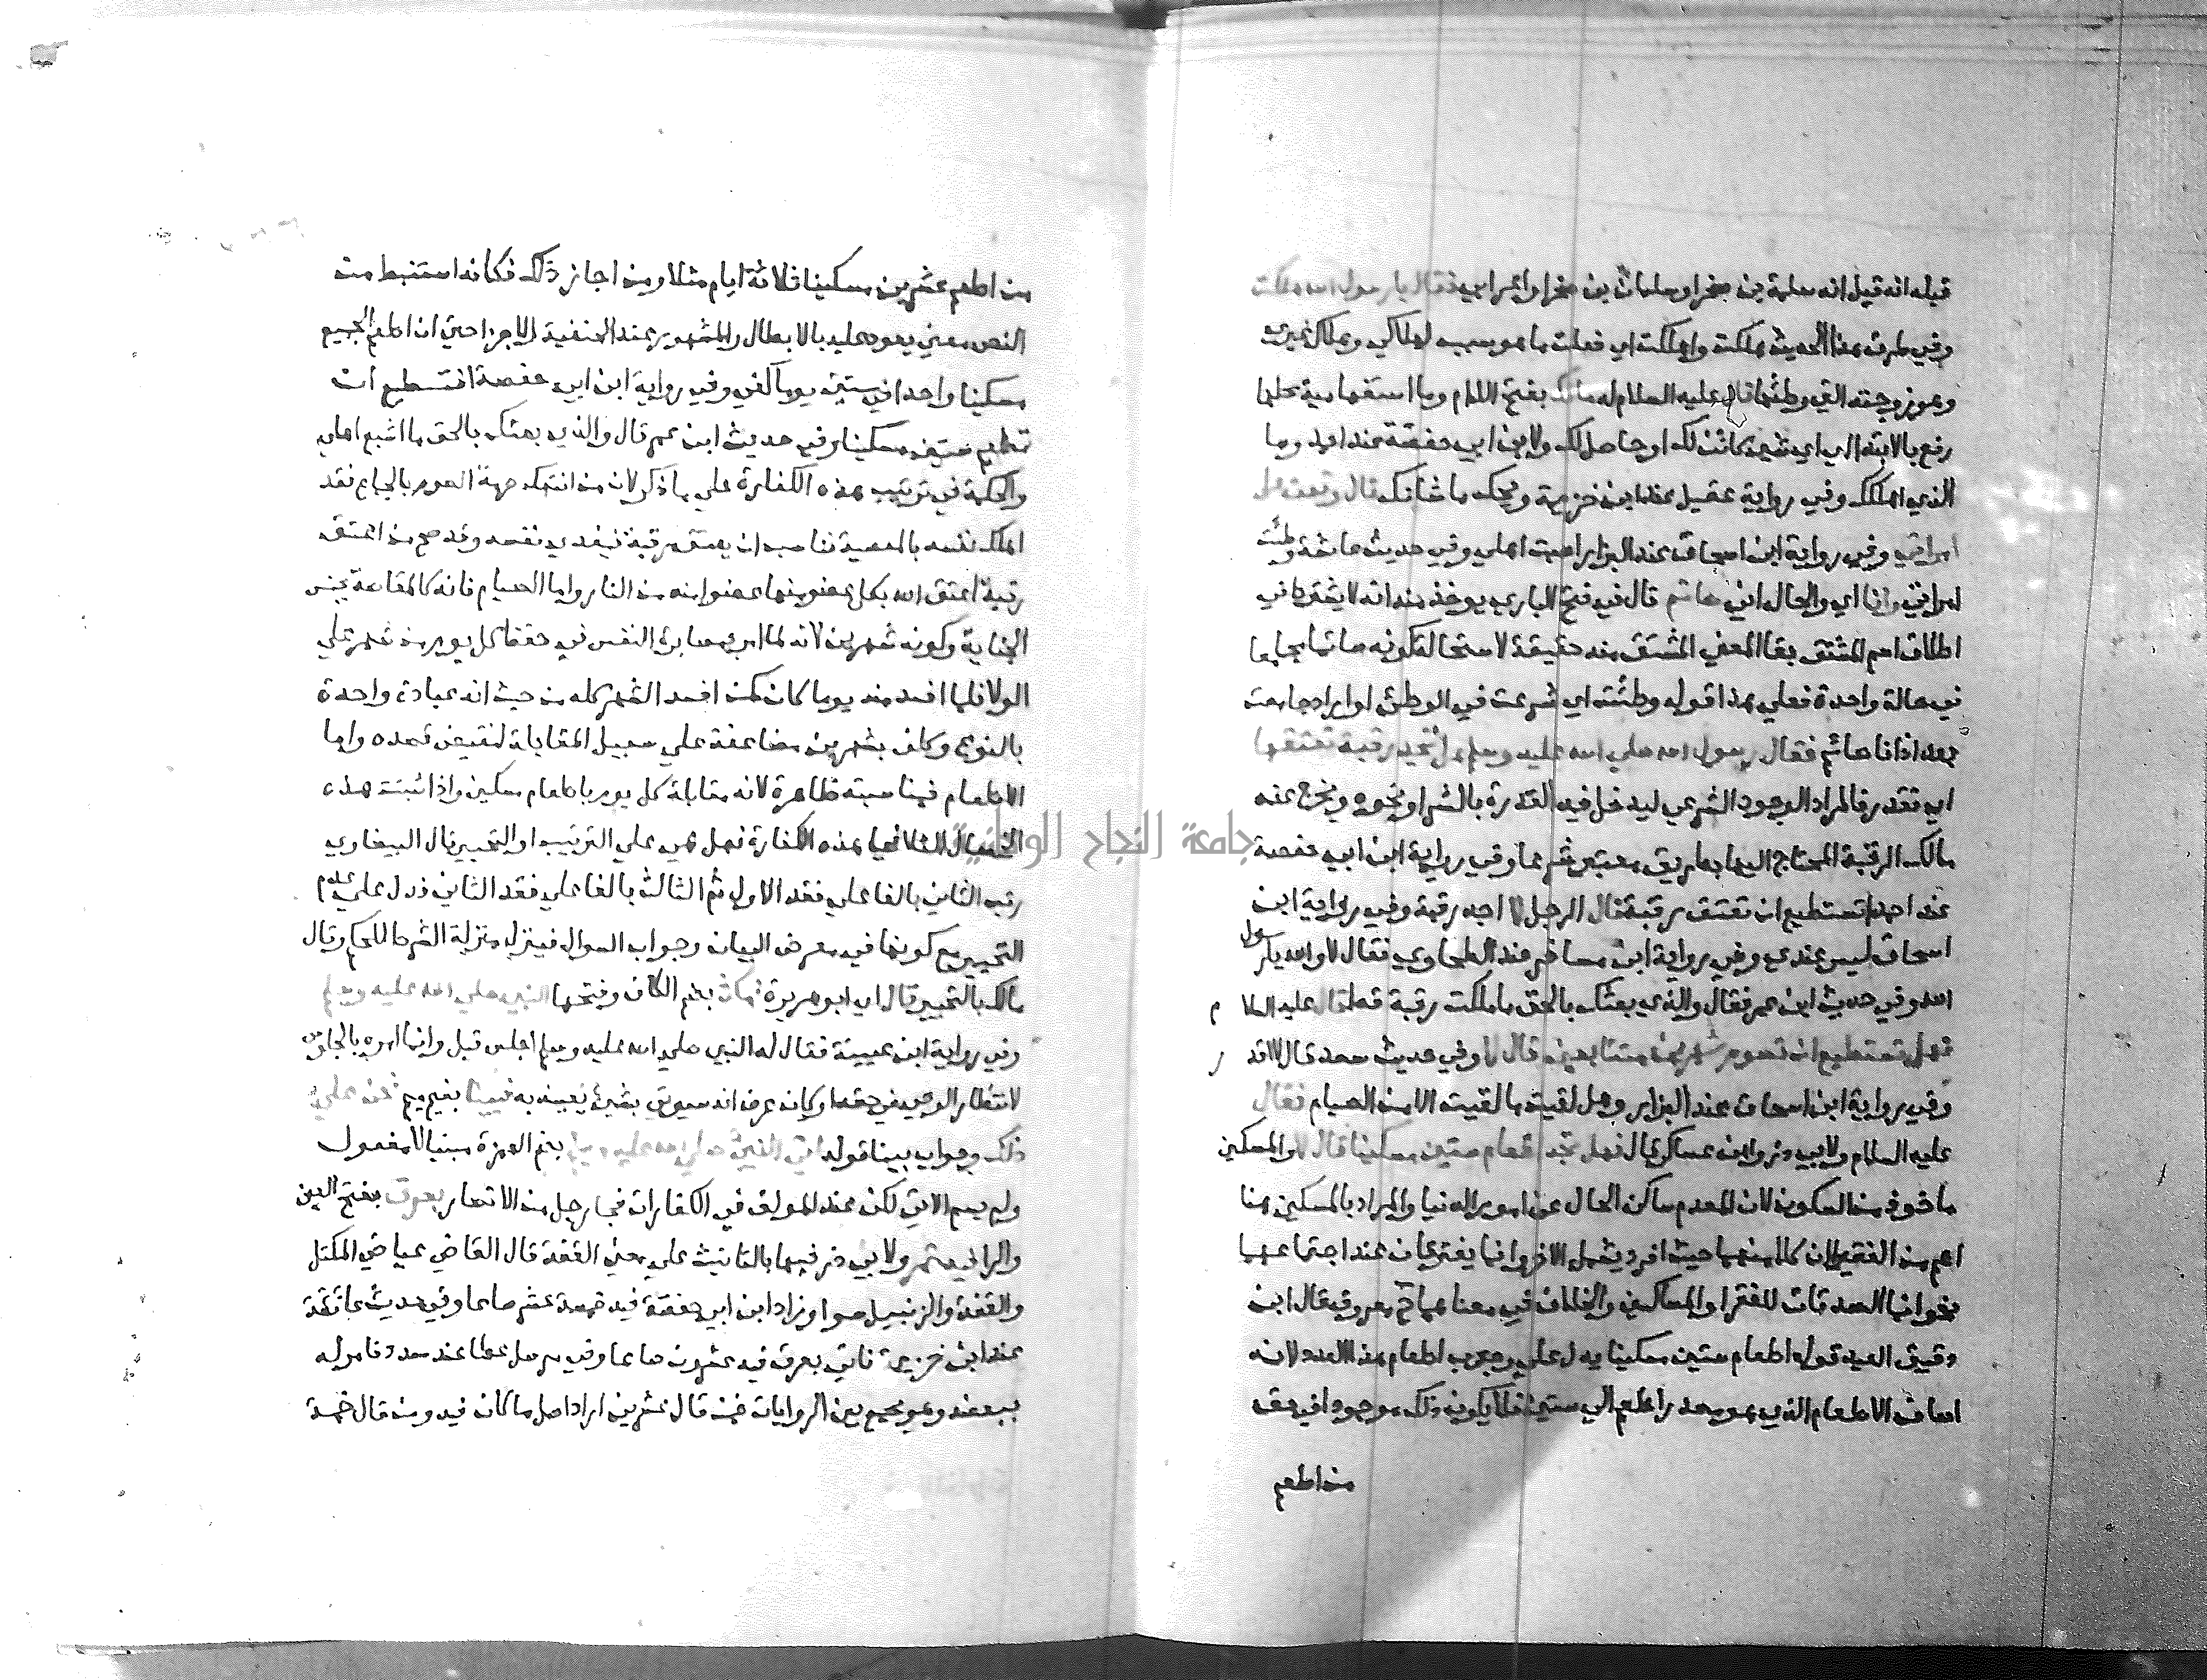 قبله انه قيل انه سلمة بن صخر او سلمان بن صخر او اعرابي فقال يا رسول الله هلكت
وفي طرق هذا الحديث هلكت واهلكت اي فعلت ما هو سبب لهلاكي وهلاك غيري
وهو زوجته التي وطئها قال عليه السلام له مالك بفتح اللام وما استفهامية محلها
رفع بالابتداء اي اي شيء كائن لك او حاصل لك ولابن ابي حفصة عند احمد وما
الذي اهلكك وفي رواية عقيل عند ابن خزيمة ويحك ما شانك قال وقعت على
امراتي وفي رواية ابن اسحاق عند البزار اصبت اهلي وفي حديث عائشة وطئت
امراتي وانا اي والحال اني صائم قال في فتح الباري يوخذ منه انه لا يشترط في
اطلاق اسم المشتق بقا المعنى المشتق منه حقيقة لاستحالة كونه صائما مجامعا
في حالة واحدة فعلي هذا قوله وطئت اي شرعت في الوطئ او اراد جامعت
بعد اذ انا صائم فقال رسول الله صلي الله عليه وسلم هل تجد رقبة تعتقها
اي تقدر فالمراد الوجود الشرعي ليدخل فيه القدرة بالشرا ونحوه ويخرج عنه
مالك الرقبة المحتاج اليها بطريق معتبر شرعا وفي رواية ابن ابي حفصة
عند احمد اتستطيع ان تعتق رقبة قال الرجل لا اجد رقبة وفي رواية ابن
اسحاق ليس عندي وفي رواية ابن مسافر عند الطحاوي فقال لا والله يا رسول
الله وفي حديث ابن عمر فقال والذي بعثك بالحق ما ملكت رقبة قط قال عليه السلام
فهل تستطيع ان تصوم شهرين متتابعين قال لا وفي حديث سعد قال لا اقدر
وفي رواية ابن اسحاق عند البزار وهل لقيت ما لقيت الا من الصيام فقال
عليه السلام ولابي ذر وابن عساكر قال فهل تجد اطعام ستين مسكينا قال لا والمسكين
ماخوذ من السكون لان المعدم ساكن الحال عن امور الدنيا والمراد بالمسكين هنا
اعم من الفقير لان كلا منهما حيث افرد يشمل الاخر وانما يفترقان عند اجتماعهما
نحو انما الصدقات للفقرا والمساكين والخلاف في معناهما ثم معروف قال ابن
دقيق العيد قوله اطعام ستين مسكينا يدل علي وجوب اطعام هذا العدد لانه
اضاف الاطعام الذي هو مصدر اطعم الي ستين فلا يكون ذلك موجودا في حق
من اطعم
من اطعم عشرين مسكينا ثلاثة ايام مثلا ومن اجاز ذلك فكانه استنبط من
النص معني يعود عليه بالابطال والمشهور عند الحنفية الاجزا حتى ان اطعم الجميع
مسكينا واحدا في ستين يوما كفي وفي رواية ابن ابي حفصة افتستطيع ان
تطعم ستين مسكينا وفي حديث ابن عمر قال والذي بعثك بالحق ما اشبع اهلي
والحكمة في ترتيب هذه الكفارة علي ما ذكر لان من انتهك حرمة الصوم بالجماع فقد
اهلك نفسه بالمعصية فناسب ان يعتق رقبة فيفدي نفسه وقد صح من اعتق
رقبة اعتق الله بكل عضو منها عضوا منه من النار واما الصيام فانه كالمقاصة بجنس
الجناية وكونه شهرين لانه لما امر بمصابرة النفس في حفظ كل يوم من شهر علي
الولا فلما افسد منه يوما كان كمن افسد الشهر كله من حيث انه عبادة واحدة
بالنوع وكلف بشهرين مضاعفة علي سبيل المقابلة لنقيض قصده واما
الاطعام فمناسبته ظاهرة لانه مقابلة كل يوم باطعام مسكين واذا ثبتت هذه
الخصال الثلاثة في هذه الكفارة فهل هي علي الترتيب او التخيير قال البيضاوي
رتب الثاني بالفا علي فقد الاول ثم الثالث بالفا علي فقد الثاني فدل علي عدم
التخيير مع كونها في معرض البيان وجواب السوال فينزل منزلة الشرط للحكم وقال
مالك بالتخيير قال اي ابو هريرة فمكث بضم الكاف وفتحها النبي صلي الله عليه وسلم
وفي رواية ابن عيينة فقال له النبي صلي الله عليه وسلم اجلس قيل وانما امره بالجلوس
لانتظار الوحي في حقه او كان عرف انه سيوتي بشيء يعينه به فبينا بغير ميم نحن علي
ذلك وجواب بينا قوله اتي النبي صلي الله عليه وسلم بضم الهمزة مبنيا للمفعول
ولم يسم الاتي لكن عند المولف في الكفارات فجا رجل من الانصار بعرق بفتح العين
والرا فيه تمر ولابي ذر فيها بالتانيث علي معني القفة قال القاضي عياض المكتل
والقفة والزنبيل سوا وزاد ابن ابي حفصة فيه خمسة عشر صاعا وفي حديث عائشة
عند ابن خزيمة فاتي بعرق فيه عشرون صاعا وفي مرسل عطا عند مسدد فامر له
ببعضه وهو يجمع بين الروايات فمن قال عشرين اراد اصل ما كان فيه ومن قال خمسة
جامعة النجاح الوطنية